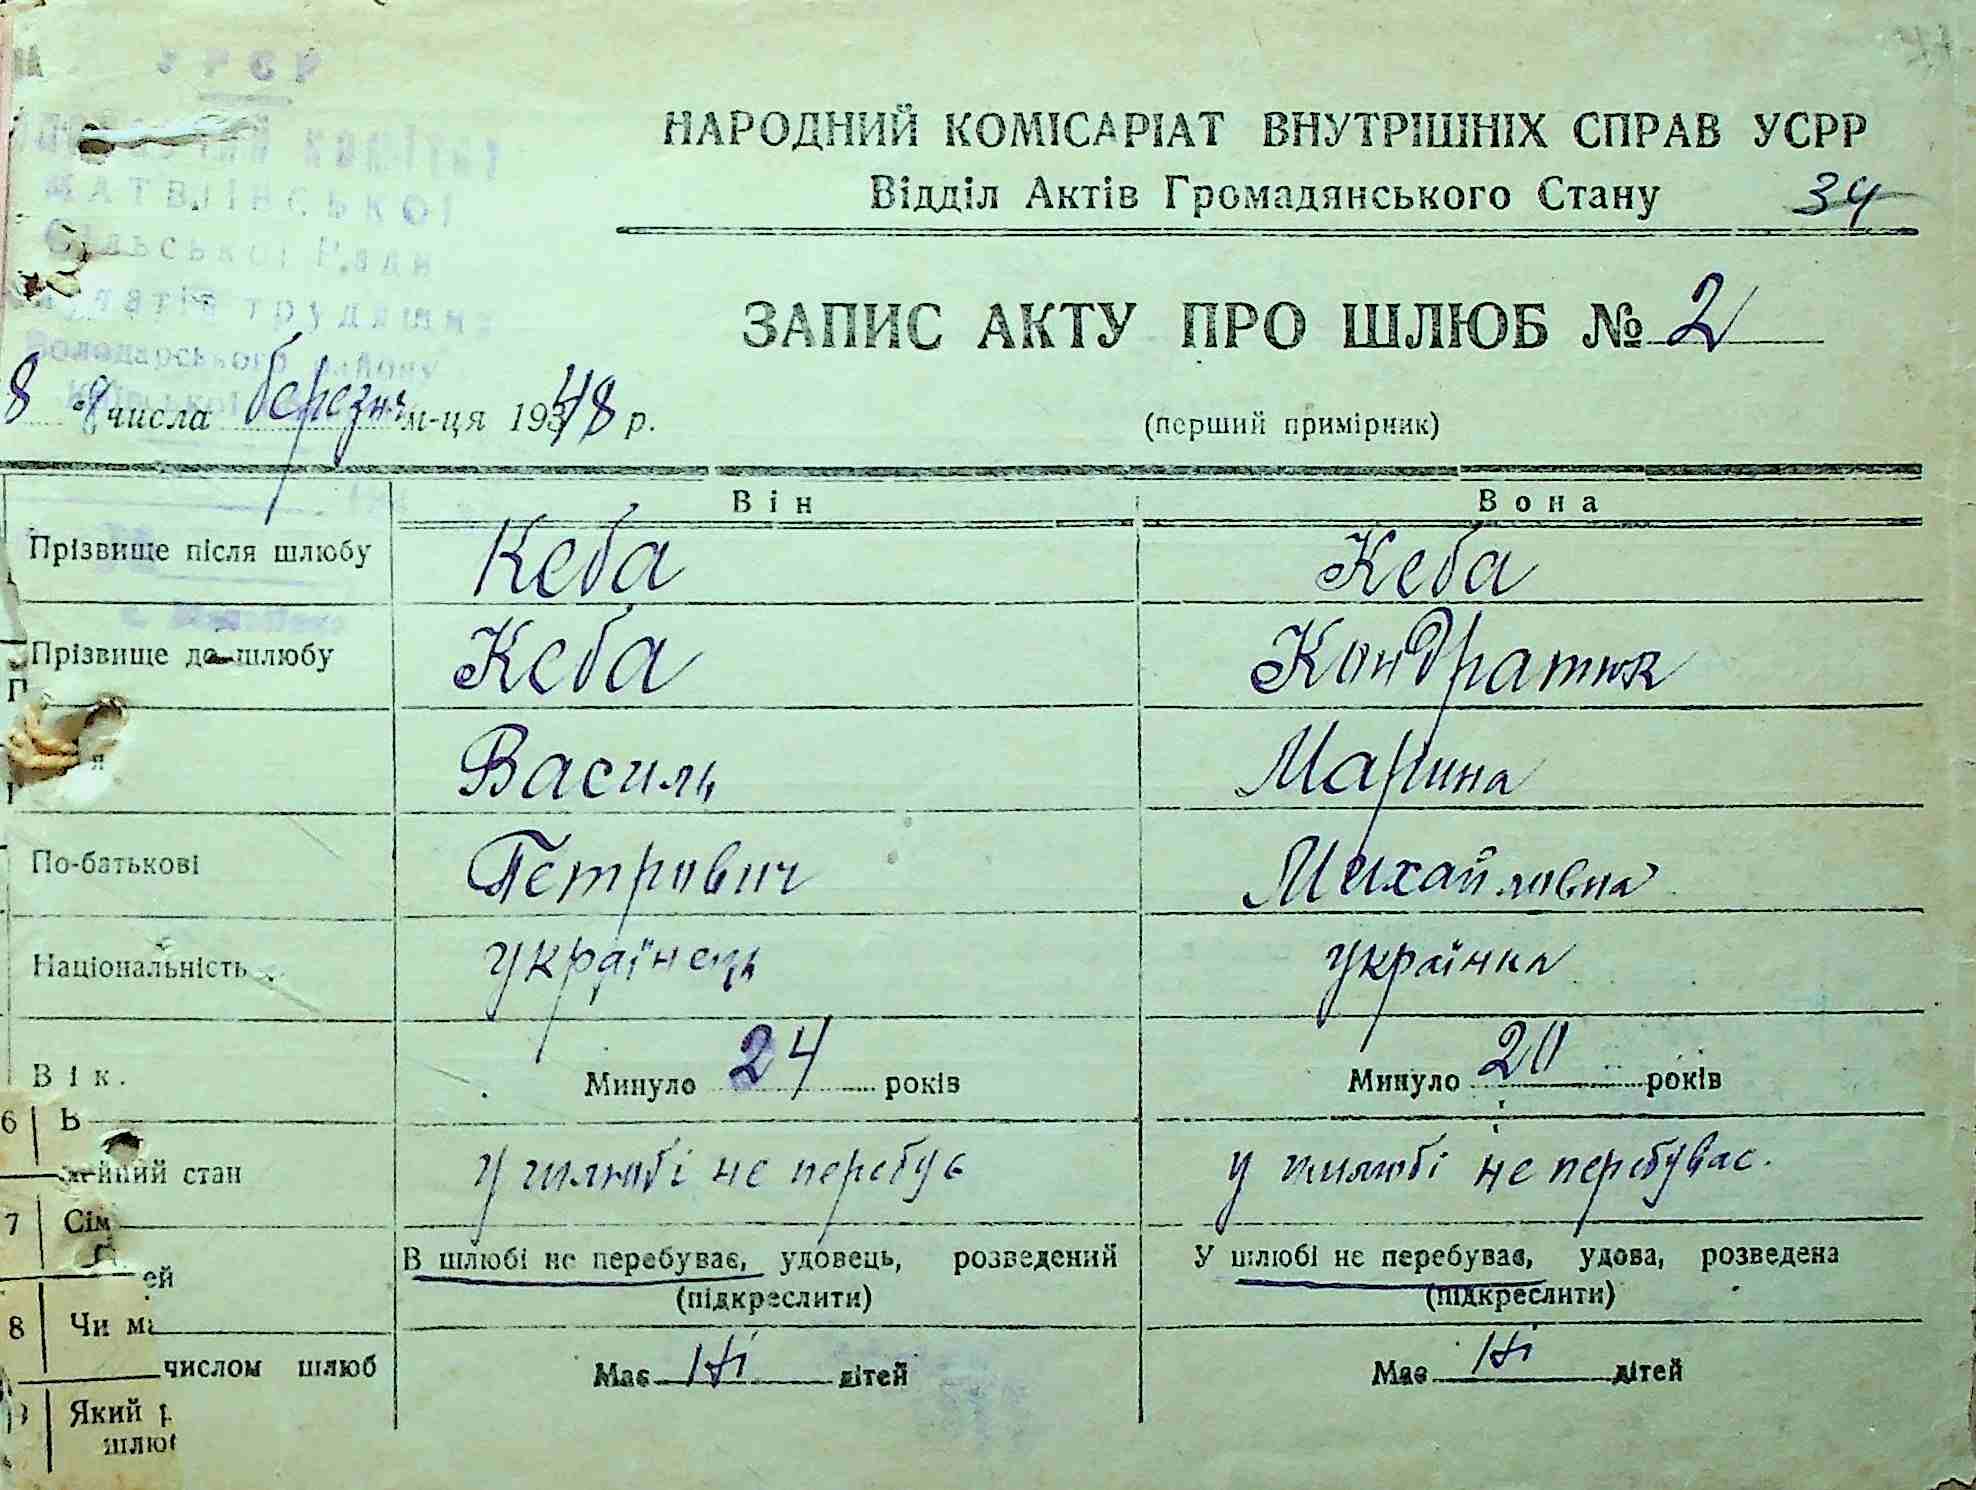 УРСР
комітет
МАТВІЇНСЬКОЇ
Сільської Ради
депутатів трудящих
Володарського району
Київської
НАРОДНИЙ КОМІСАРІАТ ВНУТРІШНІХ СПРАВ УСРР
Відділ Актів Громадянського Стану 34
ЗАПИС АКТУ ПРО ШЛЮБ № 2
8 числа березня м-ця 1948 р.
(перший примірник)
Він Вона
Прізвище після шлюбу Кеба Кеба
Прізвище до шлюбу Кеба Кондратюк
Василь Марина
По-батькові Петрович Михайловна
Національність українець українка
Вік. Минуло 24 років Минуло 20 років
6 В
стан у шлюбі не перебує у шлюбі не перебуває.
7 Сім
В шлюбі не перебуває, удовець, розведений У шлюбі не перебуває, удова, розведена
(підкреслити) (підкреслити)
8 Чи ма
числом шлюб Має ні дітей Має ні дітей
Який р
шлюб